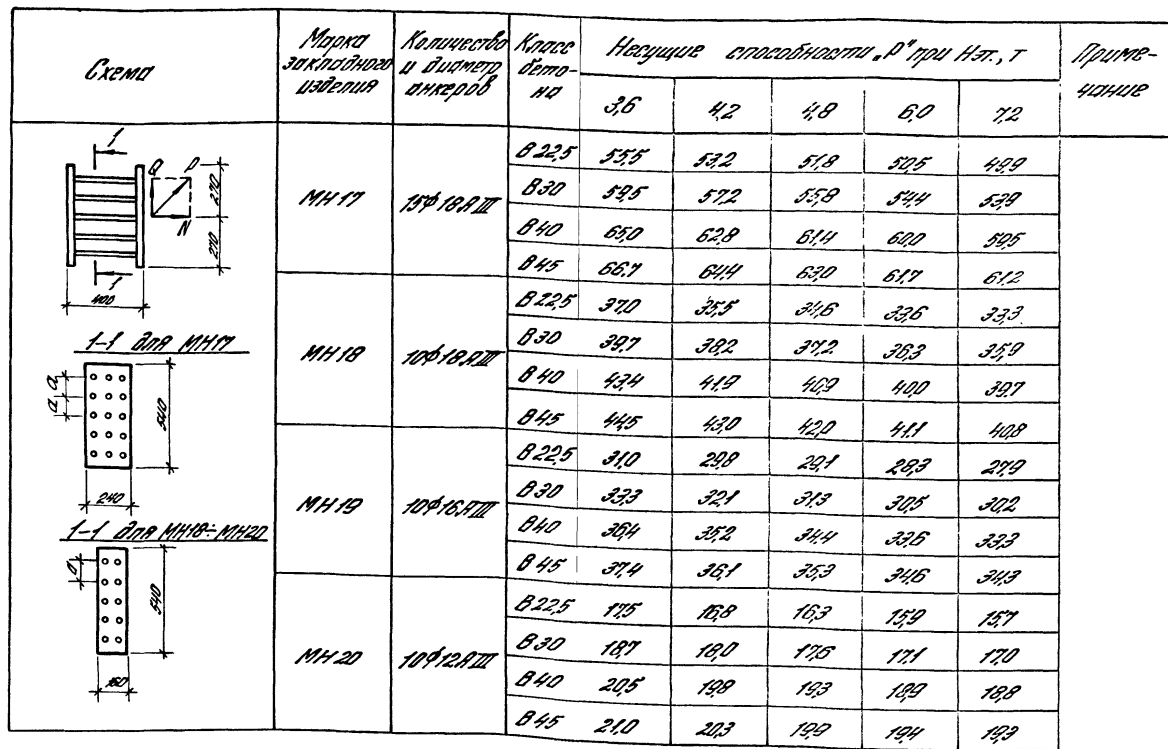 Схема
Марка закладного изделия
Количество и диаметр анкеров
Класс бетона
Несущие способности „Р" при Нэт., т
Примечание
3,6 4,2 4,8 6,0 7,2
1
Q P
N
270
270
1
400
1-1 для МН17
а а
540
240
1-1 для МН18÷МН20
а
540
160
МН17 15ф18АIII
В22,5 55,5 53,2 51,8 50,5 49,9
В30 59,5 57,2 55,8 54,4 53,9
В40 65,0 62,8 61,4 60,0 59,5
В45 66,7 64,4 63,0 61,7 61,2
МН18 10ф18АIII
В22,5 37,0 35,5 34,6 33,6 33,3
В30 39,7 38,2 37,2 36,3 35,9
В40 43,4 41,9 40,9 40,0 39,7
В45 44,5 43,0 42,0 41,1 40,8
МН19 10ф16АIII
В22,5 31,0 29,8 29,1 28,3 27,9
В30 33,3 32,1 31,3 30,5 30,2
В40 36,4 35,2 34,4 33,6 33,3
В45 37,4 36,1 35,3 34,6 34,3
МН20 10ф12АIII
В22,5 17,5 16,8 16,3 15,9 15,7
В30 18,7 18,0 17,6 17,1 17,0
В40 20,5 19,8 19,3 18,9 18,8
В45 21,0 20,3 19,9 19,4 19,3